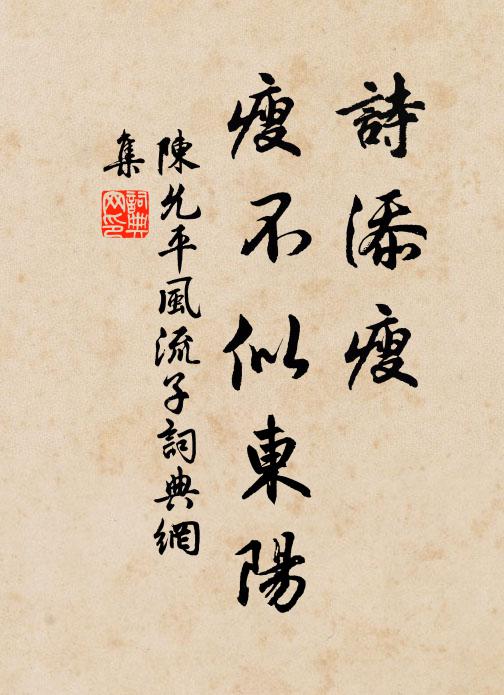 詩添瘦
瘦不似東陽
陳允平風流子詞典網
集
詞典網印